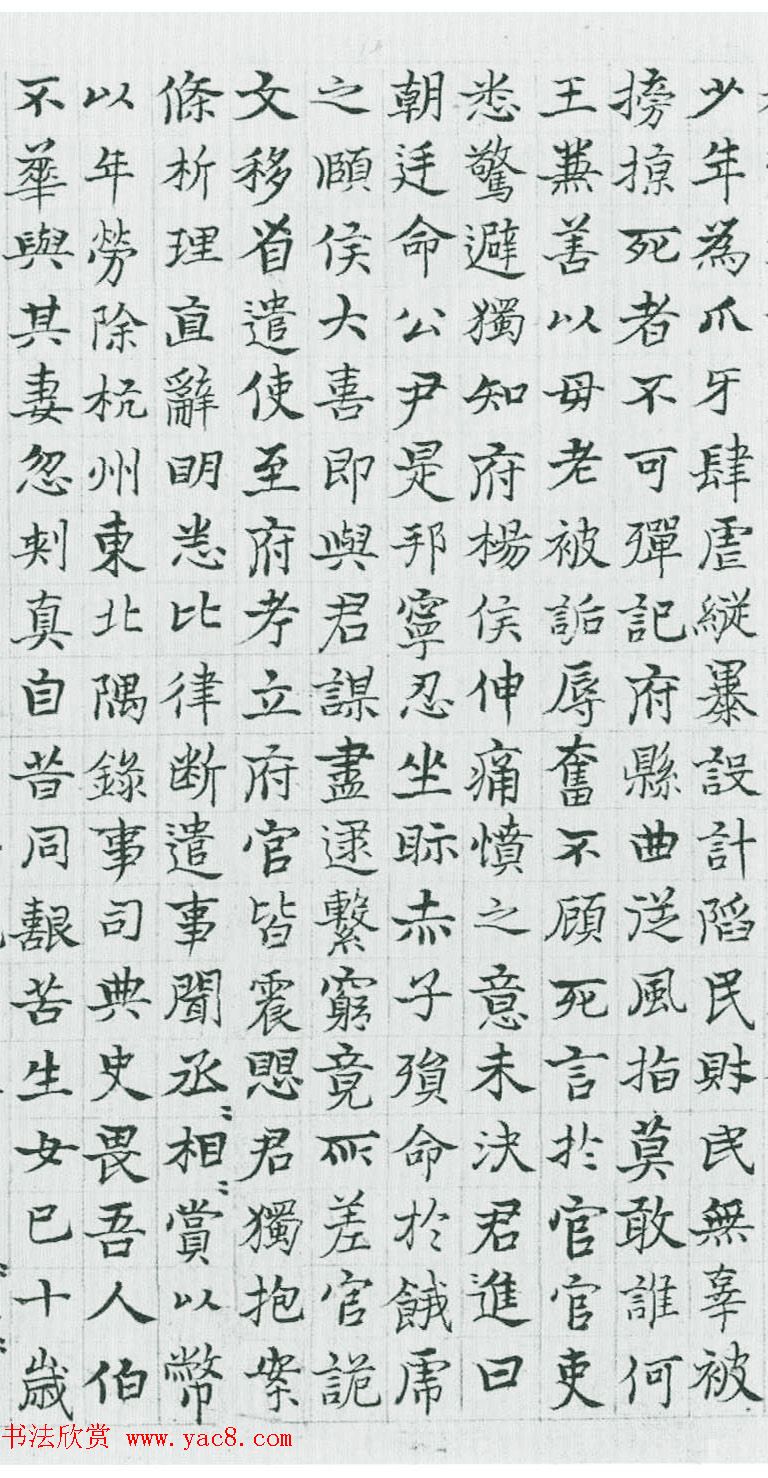 少年為爪牙肆虐縱暴設計陷民財民無辜被
搒掠死者不可彈記府縣曲從風指莫敢誰何
王兼善以母老被詬辱奮不顧死言於官官吏
悉驚避獨知府楊侯伸痛憤之意未決君進曰
朝廷命公尹是邦寧忍坐眎赤子殞命於餓虎
之頤侯大喜即與君謀盡逮繫窮竟所差官詭
文移省遣使至府考立府官皆震愳君獨抱案
條析理直辭明悉比律斷遣事聞丞相賞以幣
以年勞除杭州東北隅錄事司典史畏吾人伯
不華與其妻忽剌真自昔同艱苦生女巳十歲
书法欣赏 www.yac8.com